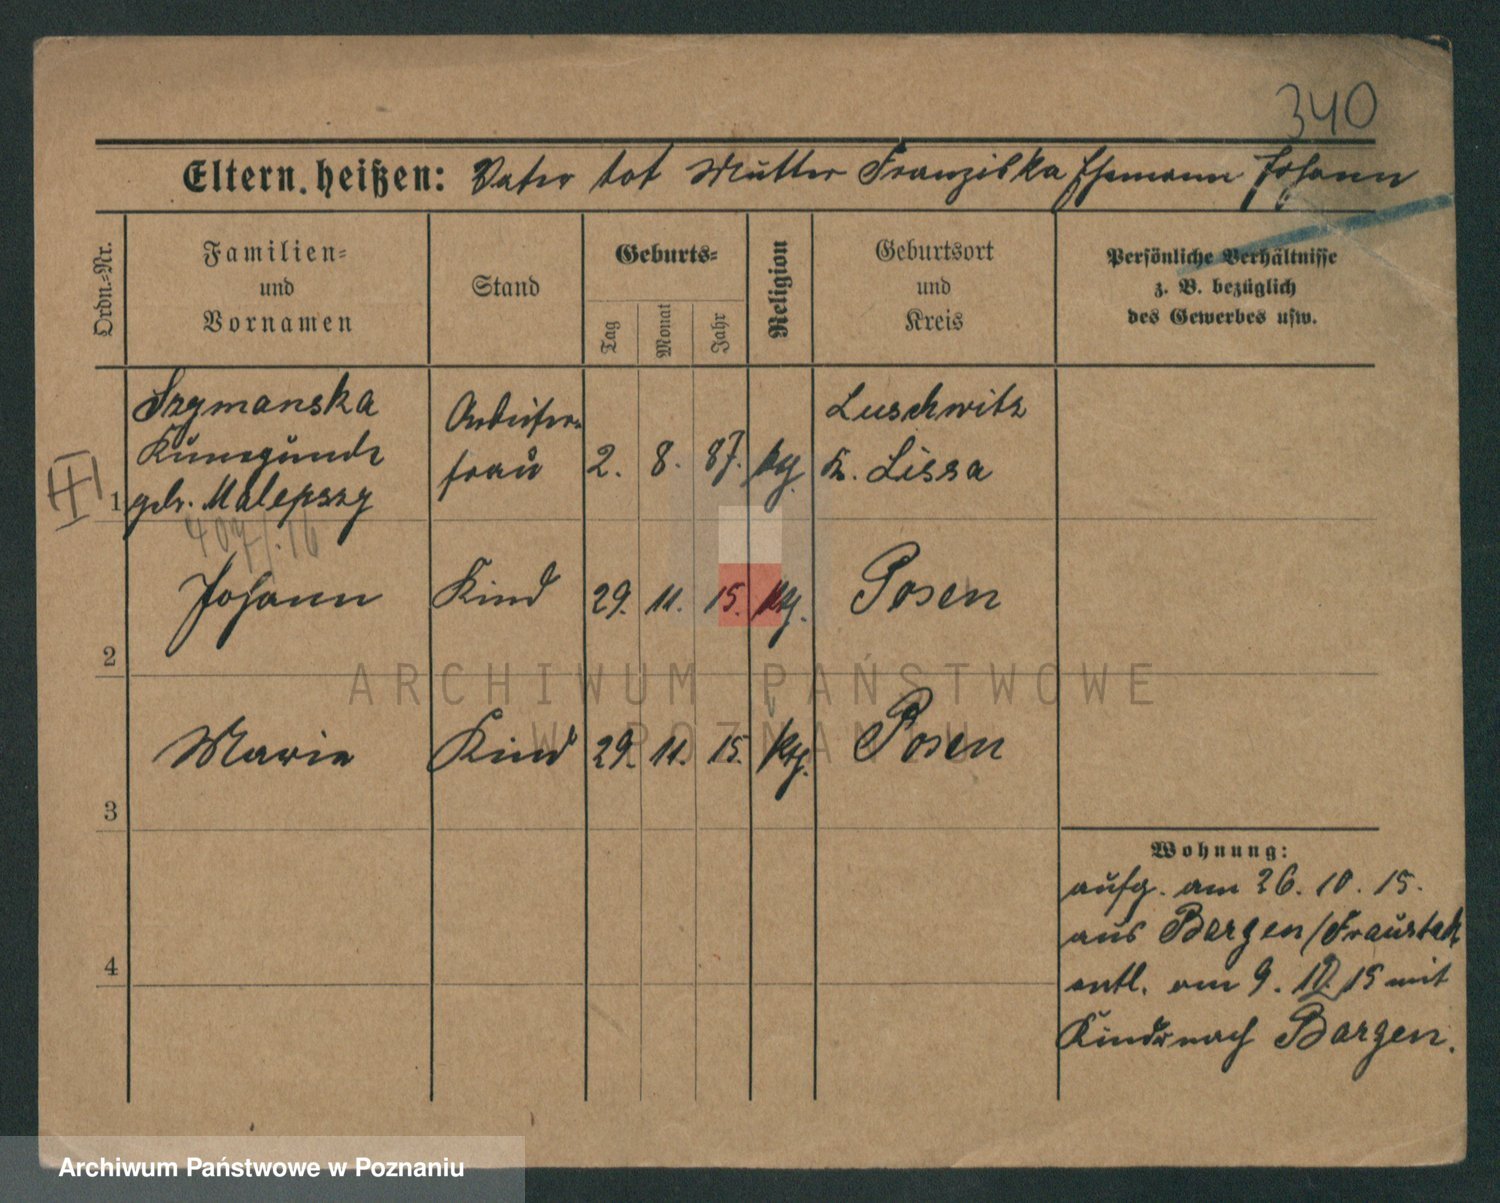 340
Eltern heißen: Vater tot Mutter Franziska Ehemann Johann
Ordn.-Nr.
Familien-
und
Vornamen
Stand
Geburts-
Tag
Monat
Jahr
Religion
Geburtsort
und
Kreis
Persönliche Verhältnisse
z. B. bezüglich
des Gewerbes usw.
1
Szymanska
Kunegunde
geb. Malepszy
Arbeiter-
frau
2. 8. 87. ktg.
Luschwitz
K. Lissa
407/.16
2
Johann Kind 29. 11. 15. ktg. Posen
3
Marie Kind 29. 11. 15. ktg. Posen
4
Wohnung:
aufg. am 26. 10. 15.
aus Bargen/Fraustadt
entl. am 9. 12. 15 mit
Kinder nach Bargen.
ARCHIWUM PAŃSTWOWE
W POZNANIU
Archiwum Państwowe w Poznaniu